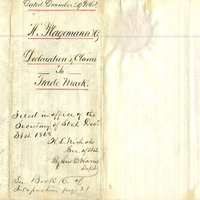 Dated December 29th 1868
H. Wagemann & Co
Declaration & Claim
to
Trade Mark.
Filed in office of the
Secretary of State Dec.
31st. 1868
H. L. Nichols
Sec. of State
By
Dept.
See Book of
Incorporation page 21